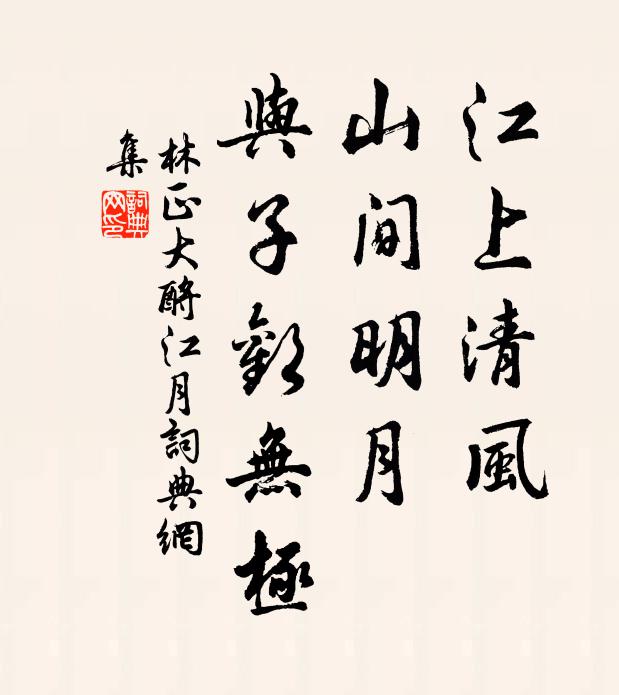 江上清風
山間明月
與子歡無極
林正大酹江月詞典網
集
詞典
网印